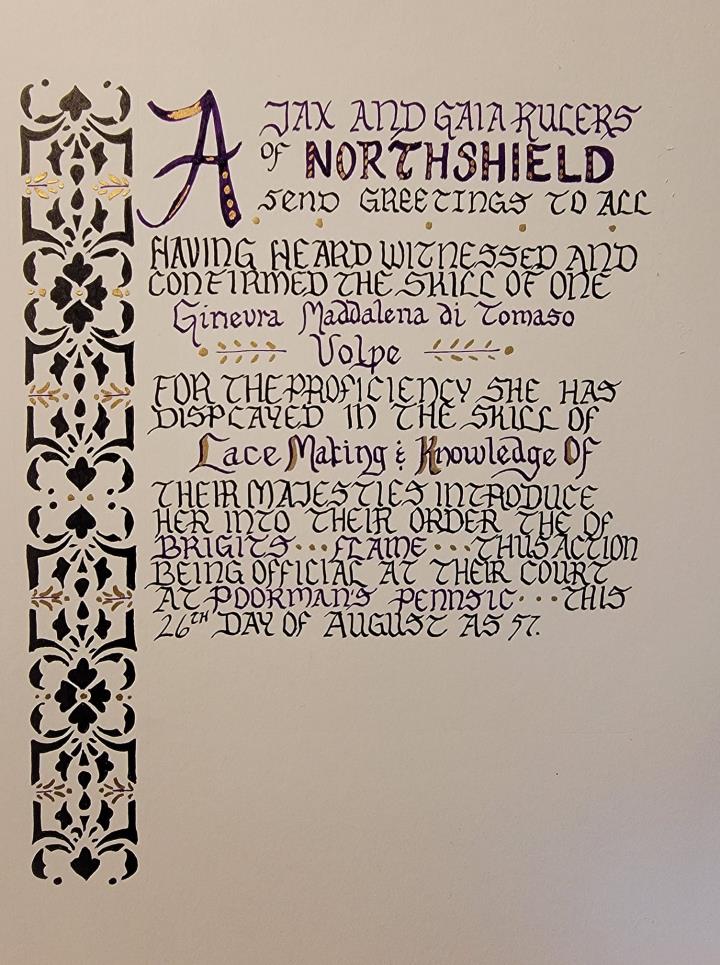 AJAX AND GAIA RULERS
OF NORTHSHIELD
SEND GREETINGS TO ALL
HAVING HEARD WITNESSED AND
CONFIRMED THE SKILL OF ONE
Ginevra Maddalena di Tomaso
Volpe
FOR THE PROFICIENCY SHE HAS
DISPLAYED IN THE SKILL OF
Lace Making & Knowledge OF
THEIR MAJESTIES INTRODUCE
HER INTO THEIR ORDER THE OF
BRIGITS ··· FLAME ··· THUS ACTION
BEING OFFICIAL AT THEIR COURT
AT POORMAN'S PENNSIC ··· THIS
26TH DAY OF AUGUST AS 57.